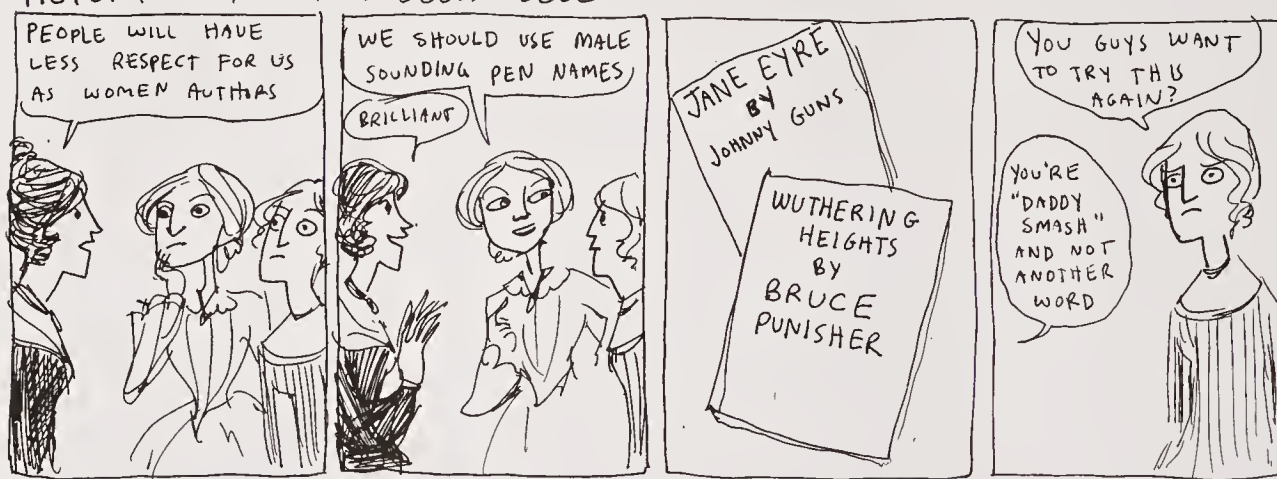 PEOPLE WILL HAVE
LESS RESPECT FOR US
AS WOMEN AUTHORS
WE SHOULD USE MALE
SOUNDING PEN NAMES
BRILLIANT
JANE EYRE
BY
JOHNNY GUNS
WUTHERING
HEIGHTS
BY
BRUCE
PUNISHER
YOU GUYS WANT
TO TRY THIS
AGAIN?
YOU'RE
"DADDY
SMASH"
AND NOT
ANOTHER
WORD